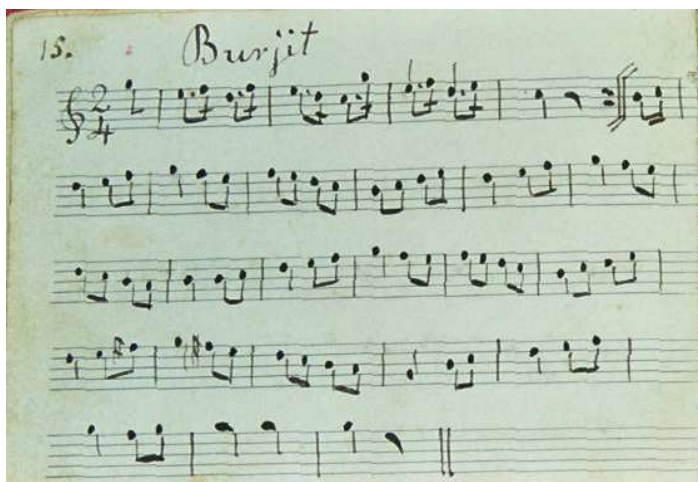 15. Burjit
2
4